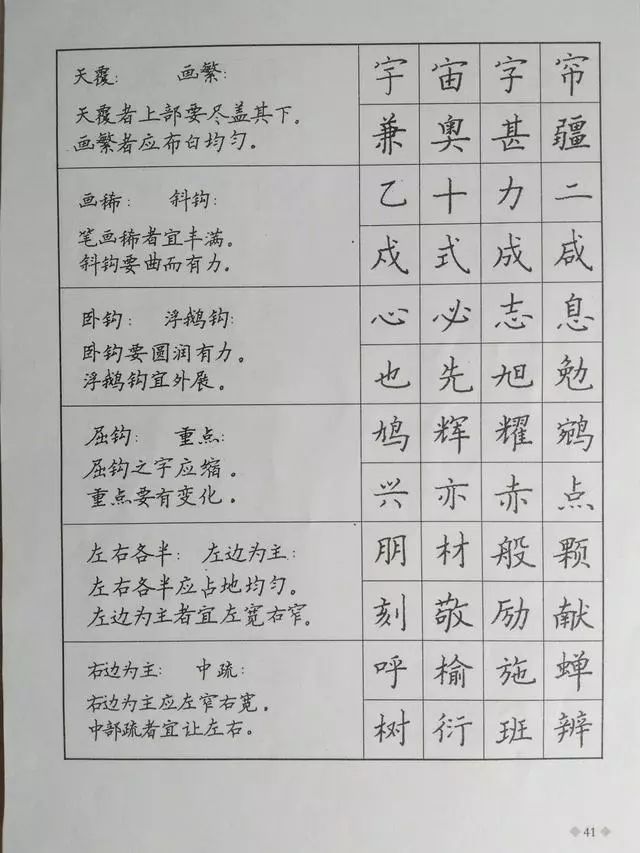 天覆： 画繁：
天覆者上部要尽盖其下。
画繁者应布白均匀。
宇 宙 字 帘
兼 奥 甚 疆
画稀： 斜钩：
笔画稀者宜丰满。
斜钩要曲而有力。
乙 十 力 二
戍 式 成 咸
卧钩： 浮鹅钩：
卧钩要圆润有力。
浮鹅钩宜外展。
心 必 志 息
也 先 旭 勉
屈钩： 重点：
屈钩之字应缩。
重点要有变化。
鸠 辉 耀 鹓
兴 亦 赤 点
左右各半： 左边为主：
左右各半应占地均匀。
左边为主者宜左宽右窄。
朋 材 般 颗
刻 敬 励 献
右边为主： 中疏：
右边为主应左窄右宽。
中部疏者宜让左右。
呼 榆 施 蝉
树 衍 班 辨
41